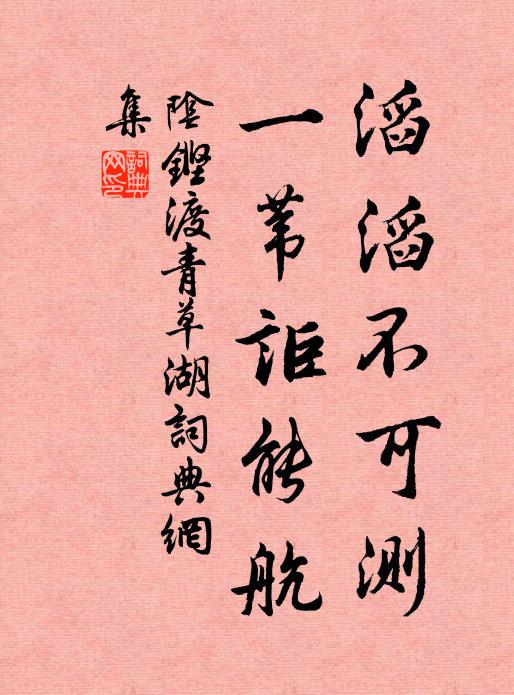 滔滔不可测
一苇詎能航
陰鏗渡青草湖詞典網
集
詞典
网印